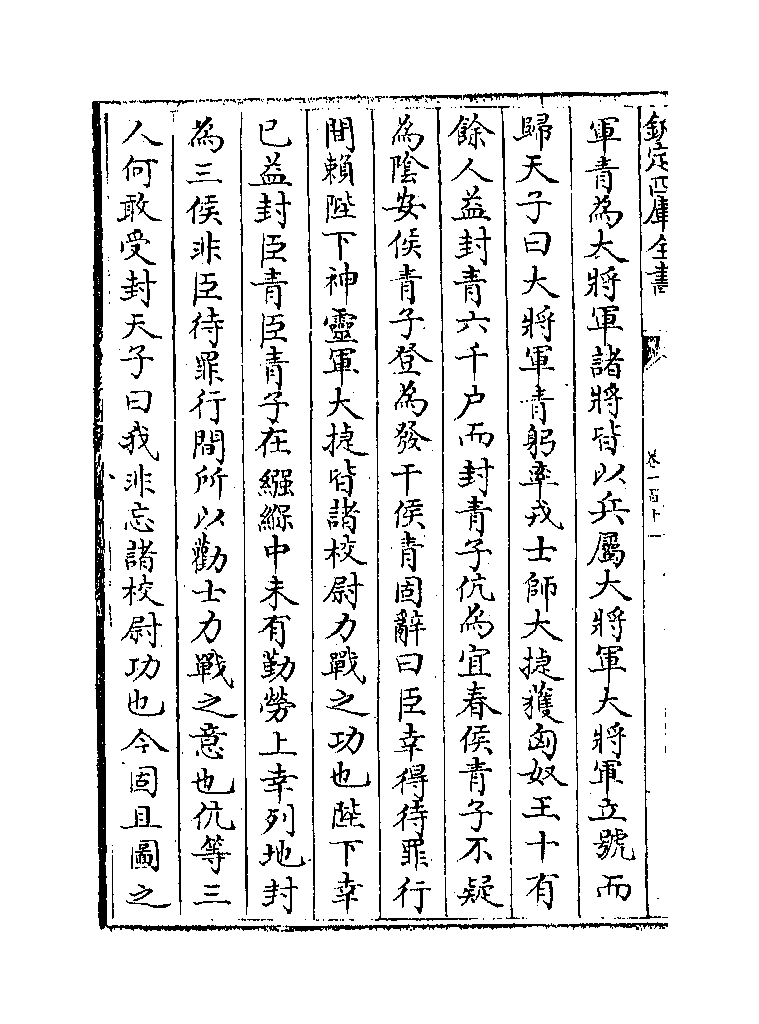 欽定四庫全書
卷一百十一
軍青為大將軍諸將皆以兵屬大將軍大將軍立號而
歸天子曰大將軍青躬率戎士師大捷獲匈奴王十有
餘人益封青六千户而封青子伉為宜春侯青子不疑
為陰安侯青子登為發干侯青固辭曰臣幸得待罪行
間賴陛下神靈軍大捷皆諸校尉力戰之功也陛下幸
已益封臣青臣青子在繦緥中未有勤勞上幸列地封
為三侯非臣待罪行間所以勸士力戰之意也伉等三
人何敢受封天子曰我非忘諸校尉功也今固且圖之